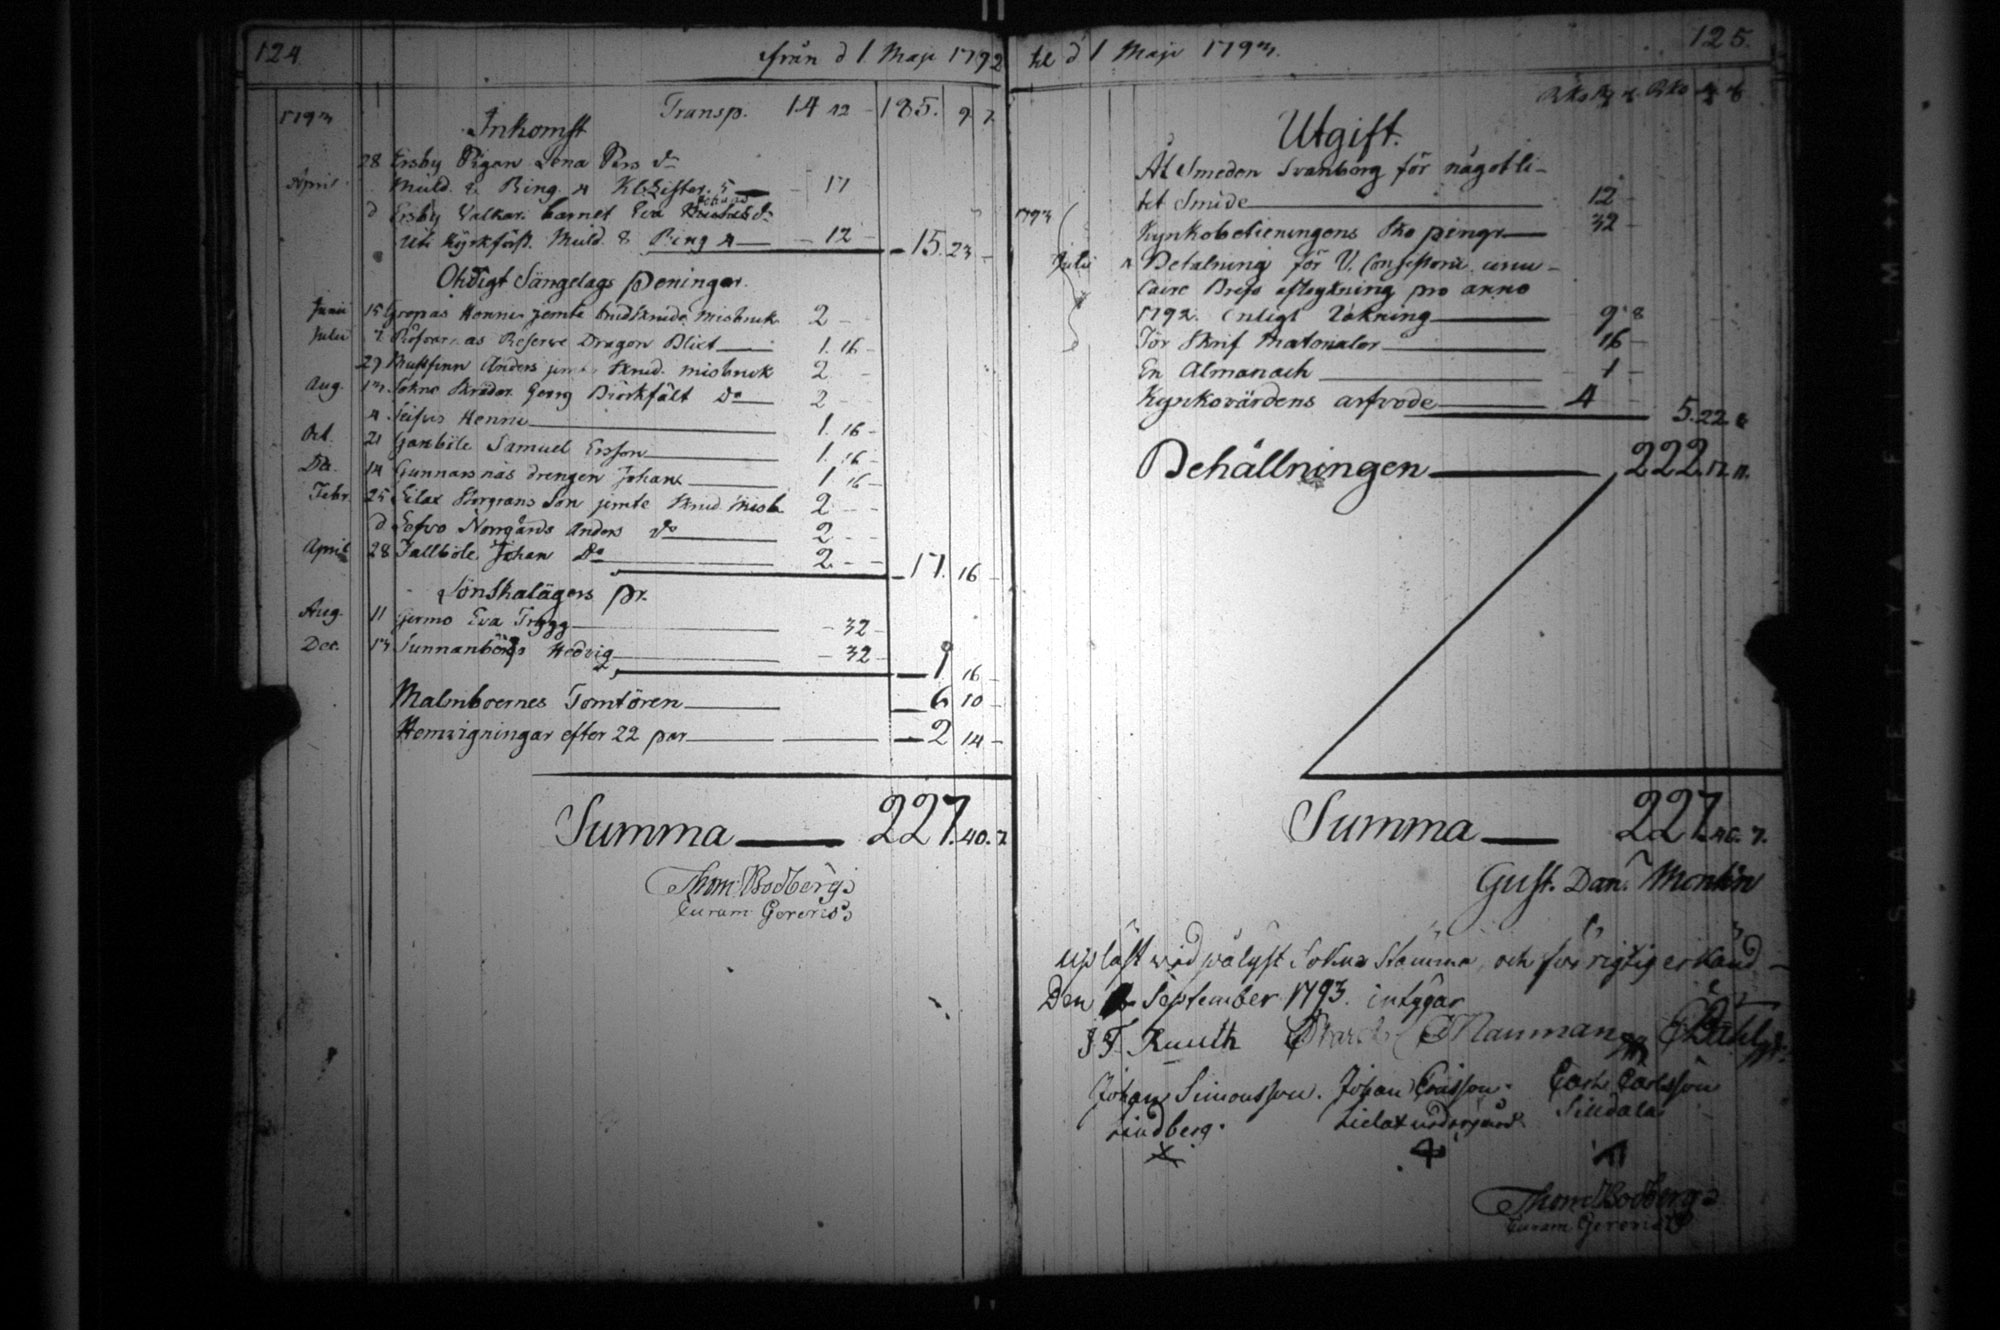 124
från d 1. Maji 1792
1793
Inkomst
Transp. 14 12 - 185. 9 7
28 Ersby Pigan Lena Pers dr
April
Muld. 8. Ring. 4 Kl. 5 - 17
d Ersby Valkars barnet Eva
uti Kyrkförst. Muld. 8 Ring 4 - 12 - 15. 23 -
Ohörigt Sängelags Peningar.
Junii 15 Gropas Henric jemte brudskruds misbruk 2 - -
Julii 7 Reserve Dragon Blict 1. 16 -
29 Anders jemte skrud. misbruk 2 - -
Aug. 13 Sokne Skrädar. Georg Björkfält Do 2 - -
4 Henric 1. 16 -
Oct. 21 Gambile Samuel Ersson 1. 16 -
De. 14 Gunnarsnäs drengen Johans 1 16 -
Febr. 25 Storgrans Son jemte skrud. misb. 2 - -
d Norrgårds Anders do 2 - -
April 28 Tallböle Johan Do 2 - - 17. 16 -
Lönskalägers pr.
Aug. 11 Germo Eva Trygg - 32 -
Dec. 13 Sunnanbergs Hedvig - 32 - 1 16 -
Malmboernes Tomtören 6 10 -
Hemvigningar efter 22 par 2 14 -
Summa 227. 40. 7
Thom: Bodberg
Curam Gerens
125.
til d 1 Maji 1793.
Utgift.
Åt Smeden Svanberg för något li-
tet Smide 12 -
1793
Kyrkobetieningens Sko pengr 32 -
Julii 4 Betalning för V. Consistorii circu-
laire Brefs aftryckning pro anno
1792. enligt räkning 9 8
För Skrif Materialer 16 -
En Almanach 1 -
Kyrkovärdens arfvode 4 - - 5. 22. 8
Behållningen 222. 17. 11.
Summa 227. 40. 7.
Gust. Dan. Montin
Upläst wid pålyst Sokne Stämma, och för rigtig erkänd
Den September 1793. intygar
J F Ruuth Nauman
Johan Simonsson. Johan Ersson. Carl Carlsson
Lindberg.
Thom: Bodberg
Curam Gerens